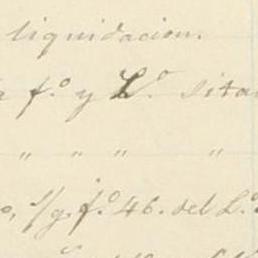 liquidacion.
a f.º y L.º sita
" " " "
o, s/g. f.º 46. del L.º